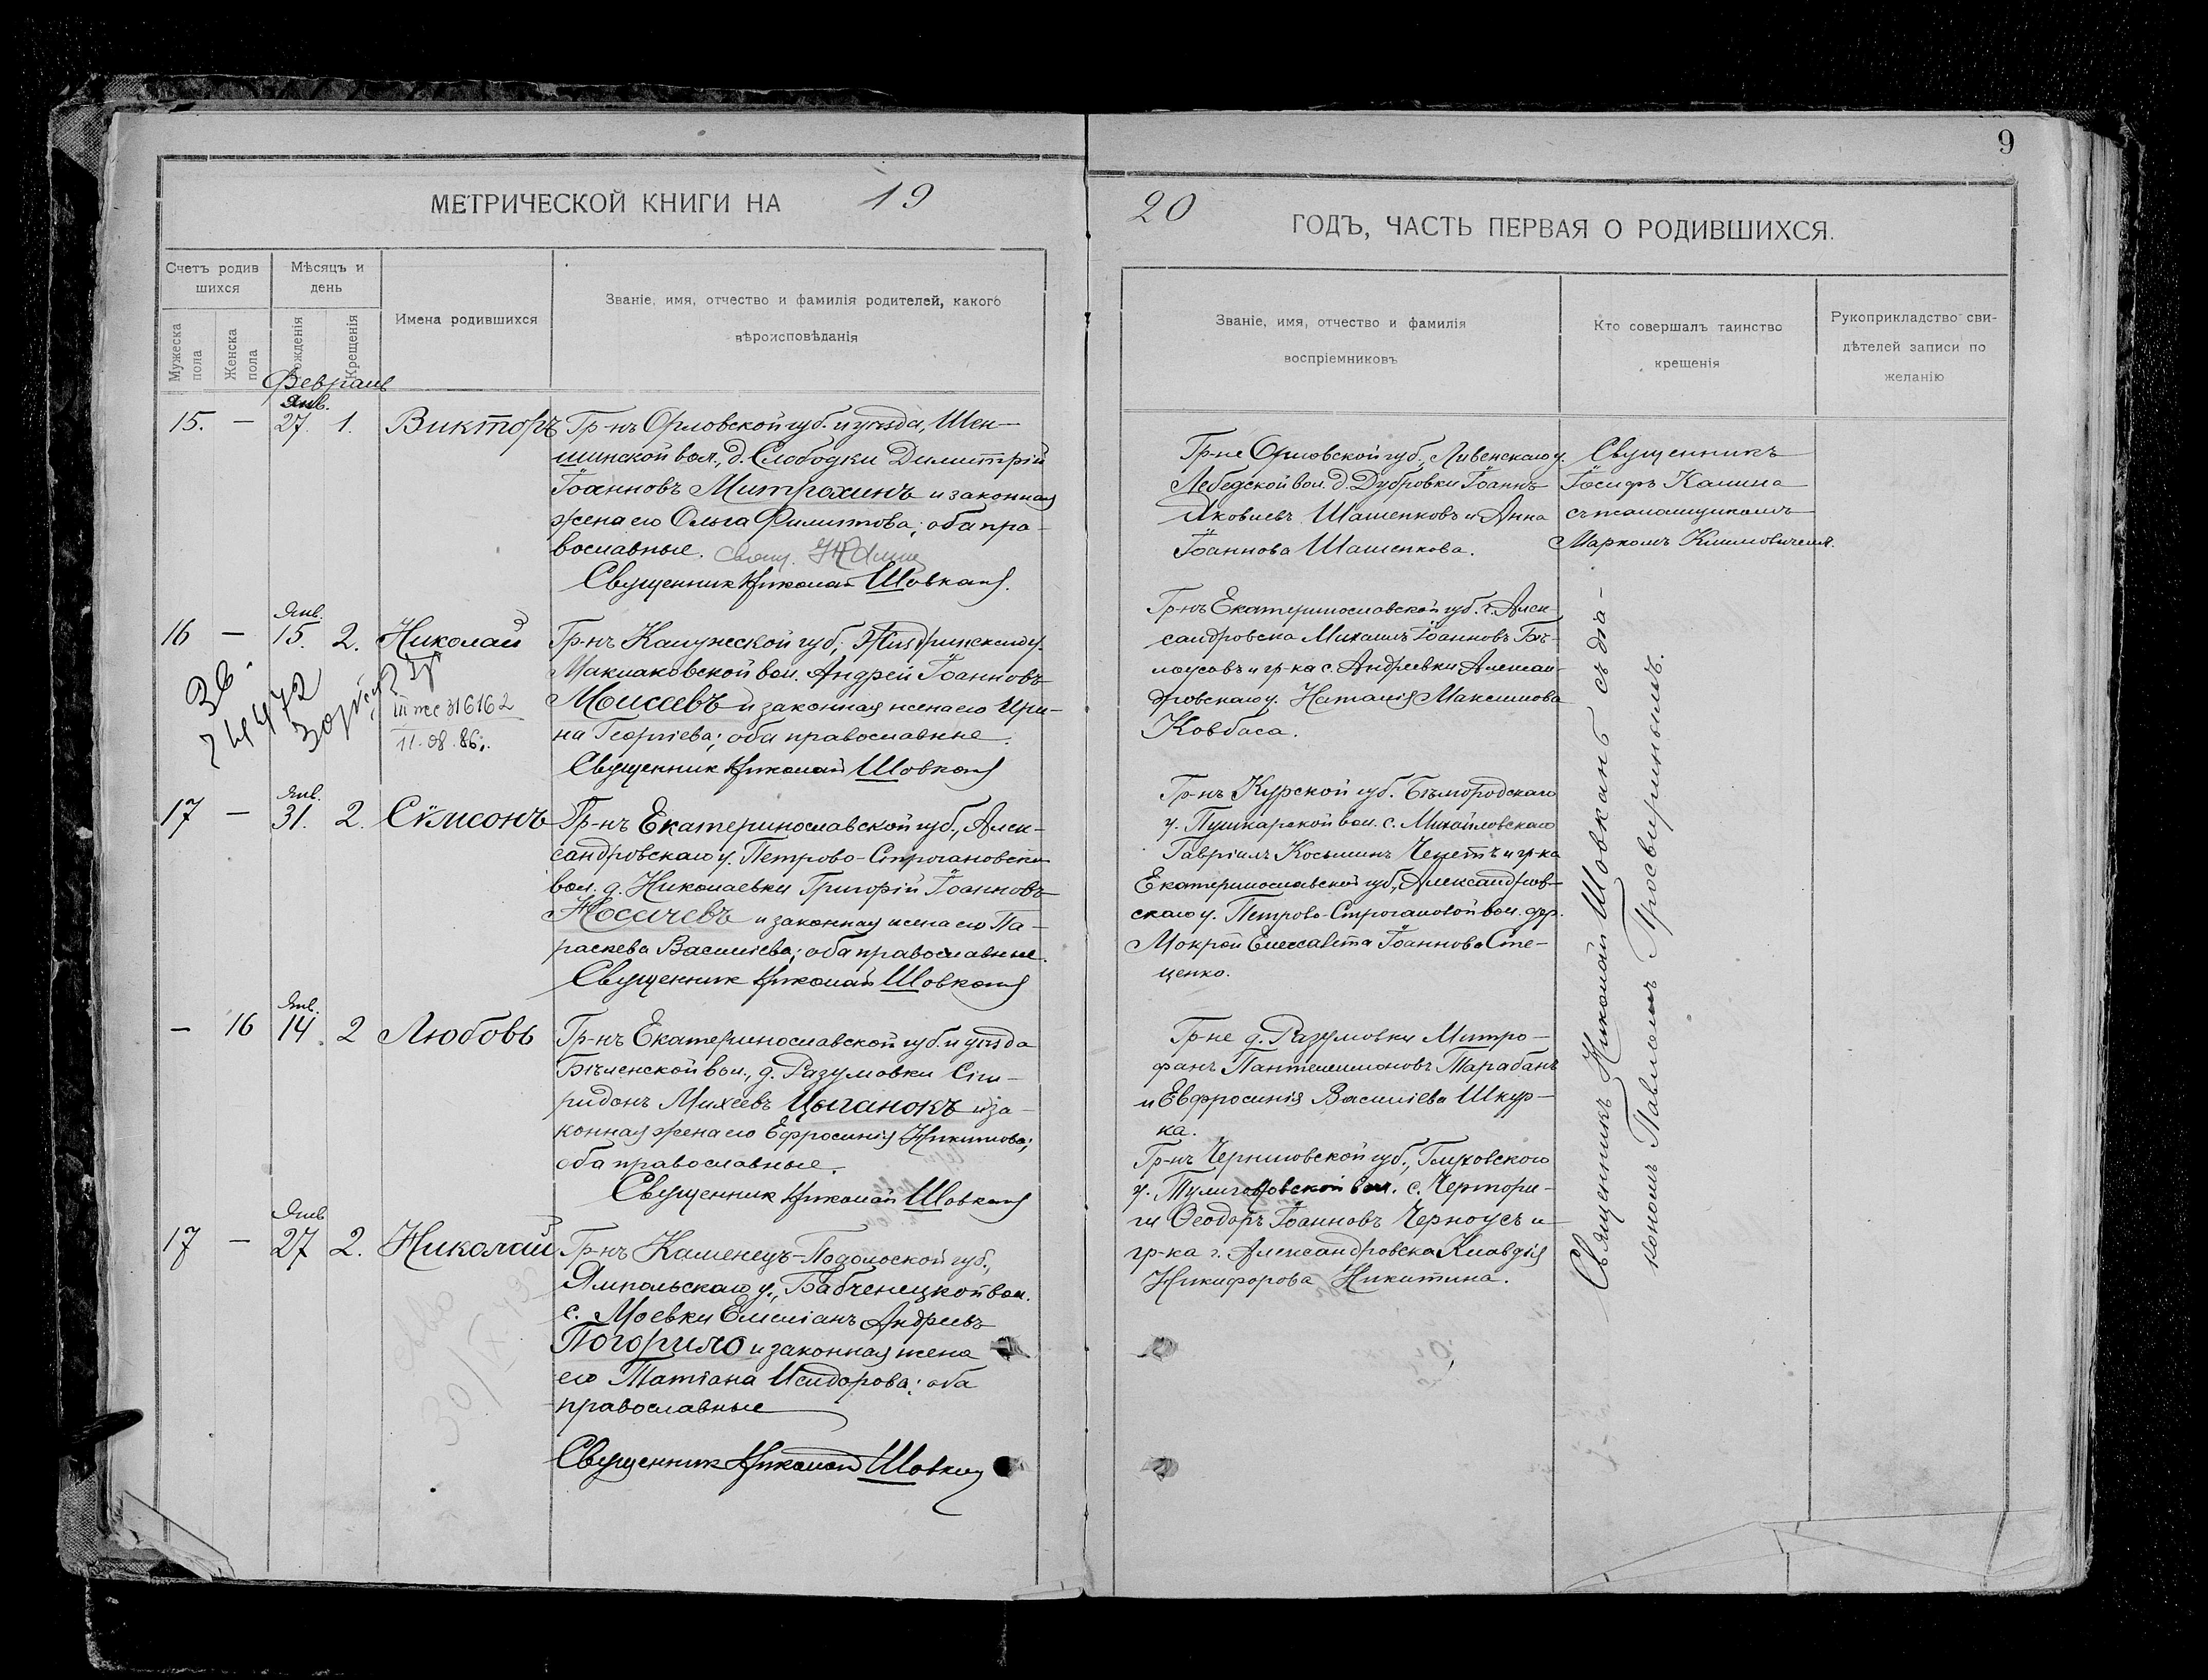 9
МЕТРИЧЕСКОЙ КНИГИ НА 19
20 ГОДЪ, ЧАСТЬ ПЕРВАЯ О РОДИВШИХСЯ.
Счетъ родив
шихся
Мужеска
пола
Женска
пола
Мѣсяцъ и
день
Рожденія
Крещенія
Имена родившихся
Званіе, имя, отчество и фамилія родителей, какого
вѣроисповѣданія
Званіе, имя, отчество и фамилія
воспріемниковъ
Кто совершалъ таинство
крещенія
Рукоприкладство сви-
дѣтелей записи по
желанію
Февраль
Янв.
15. — 27. 1. Викторъ
Гр-нъ Орловской губ. и уѣзда, Шен-
шинской вол., д. Слободки Димитрій
Іоанновъ Митрохинъ и законная
жена его Ольга Филиппова; оба пра-
вославные.
Священник Николай Шовкань
Гр-не Орловской губ., Ливенскаго у.
Лебедской вол. д. Дубровки Іоаннъ
Яковлевъ Шашенковъ и Анна
Іоаннова Шашенкова.
Священникъ
Іосифъ Калина
съ псаломщикомъ
Маркомъ Климовичемъ.
Янв.
16 — 15. 2. Николай
74472
316162
11.08.86
Гр-нъ Калужской губ., Жиздринскаго у.
Маклаковской вол. Андрей Іоанновъ
Моисеевъ и законная жена его Ири-
на Георгіева; оба православные.
Священник Николай Шовкань
Гр-нъ Екатеринославской губ. г. Алек-
сандровска Михаилъ Іоанновъ Бѣ-
лоусовъ и гр-ка с. Андреевки Алексан-
дровскаго у. Наталія Максимова
Ковбаса.
Янв.
17 — 31. 2. Сѵмсонъ
Гр-нъ Екатеринославской губ., Алек-
сандровскаго у. Петрово-Строгановской
вол. д. Николаевки Григорій Іоанновъ
Носачевъ и законная жена его Па-
раскева Василіева; оба православные.
Священник Николай Шовкань
Гр-нъ Курской губ. Бѣлгородскаго
у. Пушкарской вол. с. Михайловскаго
Гавріилъ Косьминъ Чепетъ и гр-ка
Екатеринославской губ., Александров-
скаго у. Петрово-Строгановой вол. дер.
Мокрой Елисавета Іоаннова Сте-
ценко.
Янв.
— 16 14. 2 Любовь
Гр-нъ Екатеринославской губ. и уѣзда
Бѣленской вол., д. Разумовки Спи-
ридонъ Михеевъ Цыганокъ и за-
конная жена его Ефросинія Никитова;
оба православные.
Священник Николай Шовкань
Гр-не д. Разумовки Митро-
фанъ Пантелеимоновъ Тарабанъ
и Евфросинія Василіева Шкур-
ка.
Янв
17 — 27 2. Николай
Гр-нъ Каменецъ-Подольской губ.,
Ямпольскаго у., Бабченецкой вол.
с. Моевки Емиліанъ Андреевъ
Погорило и законная жена
его Татіана Исидорова; оба
православные
Священник Николай Шовкань
Гр-нъ Черниговской губ., Глуховскаго
у. Тулиголовской вол. с. Чертори-
ги Ѳеодоръ Іоанновъ Черноусъ и
гр-ка г. Александровска Клавдія
Никифорова Никитина.
Священникъ Николай Шовкань съ діа-
кономъ Павломъ Просвиринымъ.